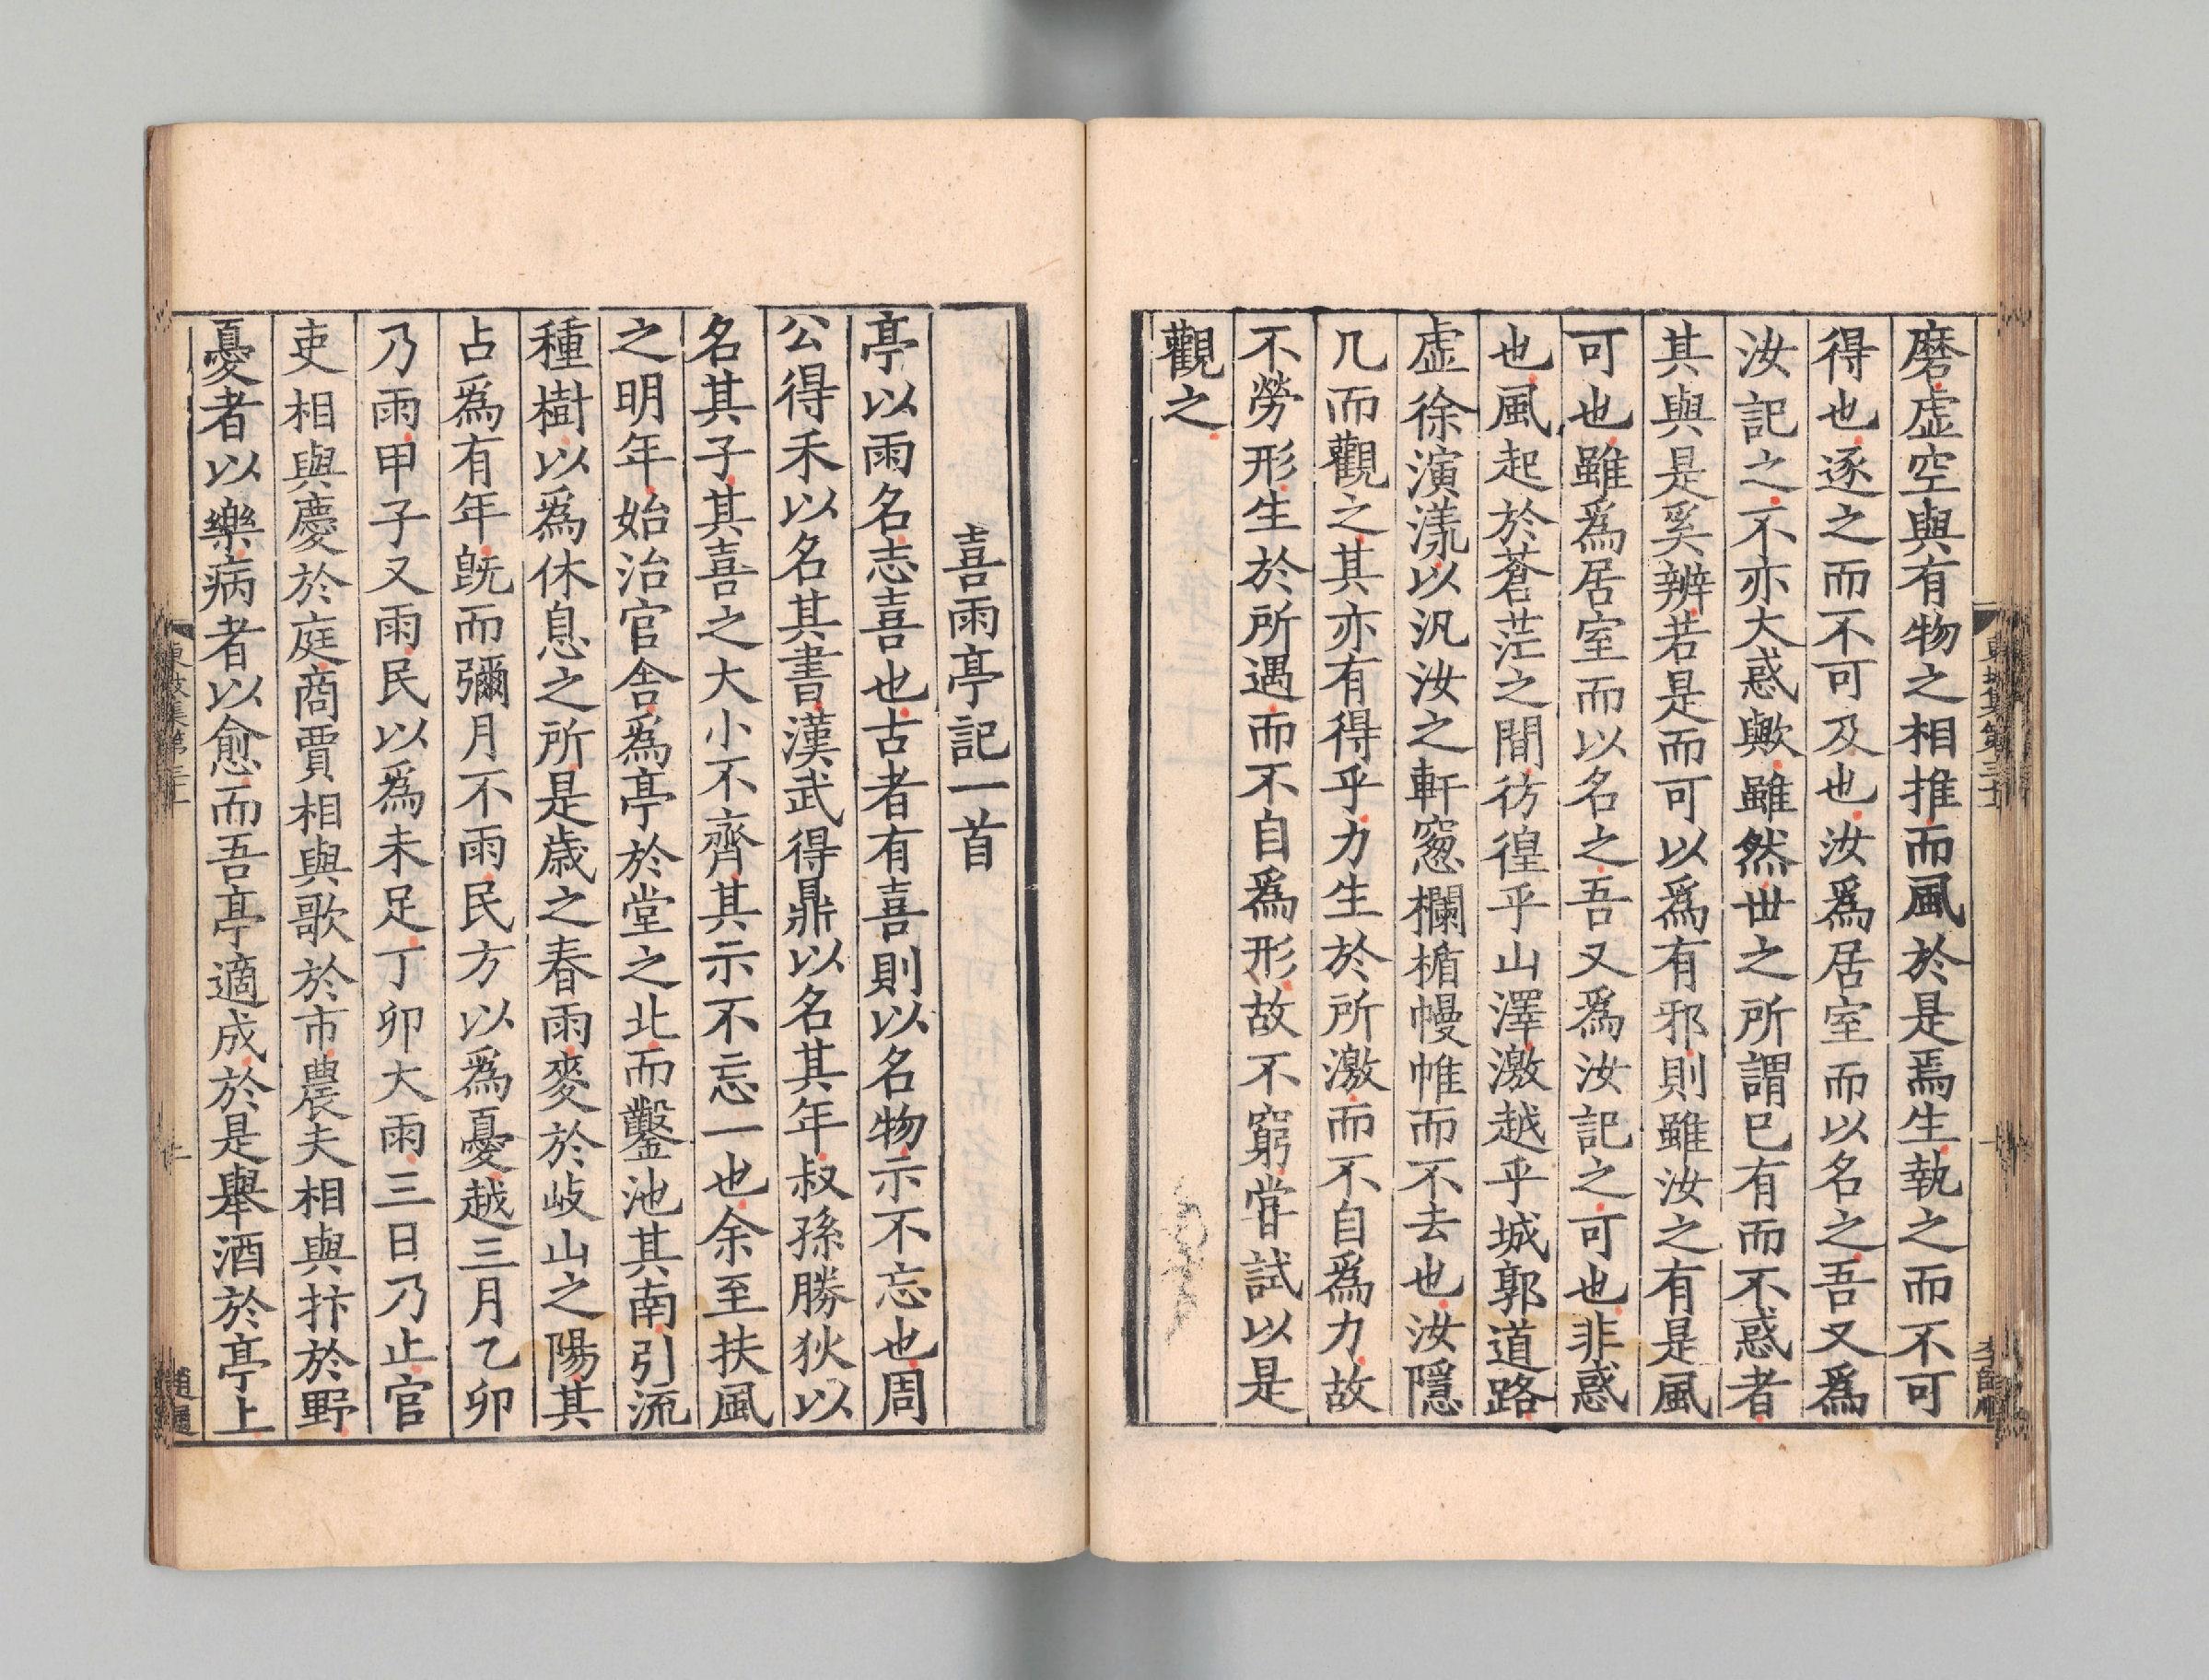 磨虛空與有物之相推而風於是焉生執之而不可
得也逐之而不可及也汝爲居室而以名之吾又爲
汝記之不亦大惑歟雖然世之所謂已有而不惑者
其與是奚辨若是而可以爲有邪則雖汝之有是風
可也雖爲居室而以名之吾又爲汝記之可也非惑
也風起於蒼茫之間彷徨乎山澤激越乎城郭道路
虛徐演漾以汎汝之軒窓欄楯幔帷而不去也汝隱
几而觀之其亦有得乎力生於所激而不自爲力故
不勞形生於所遇而不自爲形故不窮嘗試以是
觀之
喜雨亭記一首
亭以雨名志喜也古者有喜則以名物示不忘也周
公得禾以名其書漢武得鼎以名其年叔孫勝狄以
名其子其喜之大小不齊其示不忘一也余至扶風
之明年始治官舍爲亭於堂之北而鑿池其南引流
種樹以爲休息之所是歳之春雨麥於岐山之陽其
占爲有年旣而彌月不雨民方以爲憂越三月乙卯
乃雨甲子又雨民以爲未足丁卯大雨三日乃止官
吏相與慶於庭商賈相與歌於市農夫相與抃於野
憂者以樂病者以愈而吾亭適成於是舉酒於亭上